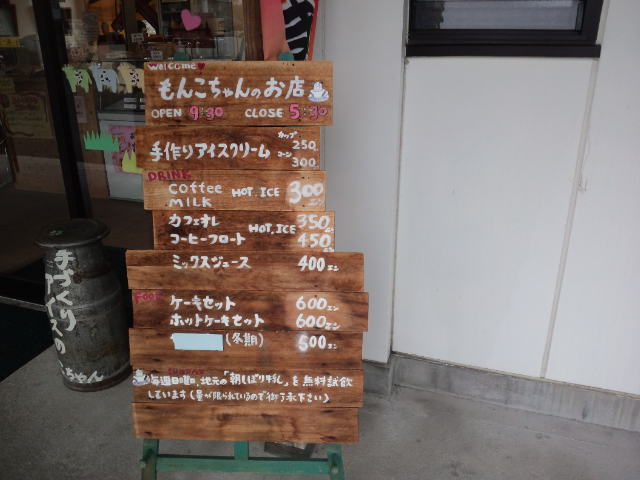 welcome♥
もんこちゃんのお店
OPEN 9:30 CLOSE 5:30
手作りアイスクリーム カップ 250
コーン 300
DRINK
coffee HOT.ICE 300
MILK
カフェオレ HOT.ICE 350
コーヒーフロート 450エン
ミックスジュース 400エン
FOOD
ケーキセット 600エン
ホットケーキセット 600エン
(冬期) 500エン
SUNDAY
毎週日曜、地元の「朝しぼり牛乳」を無料試飲
しています(量が限られているので御了承下さい)
手づくり
アイスの
ちゃん